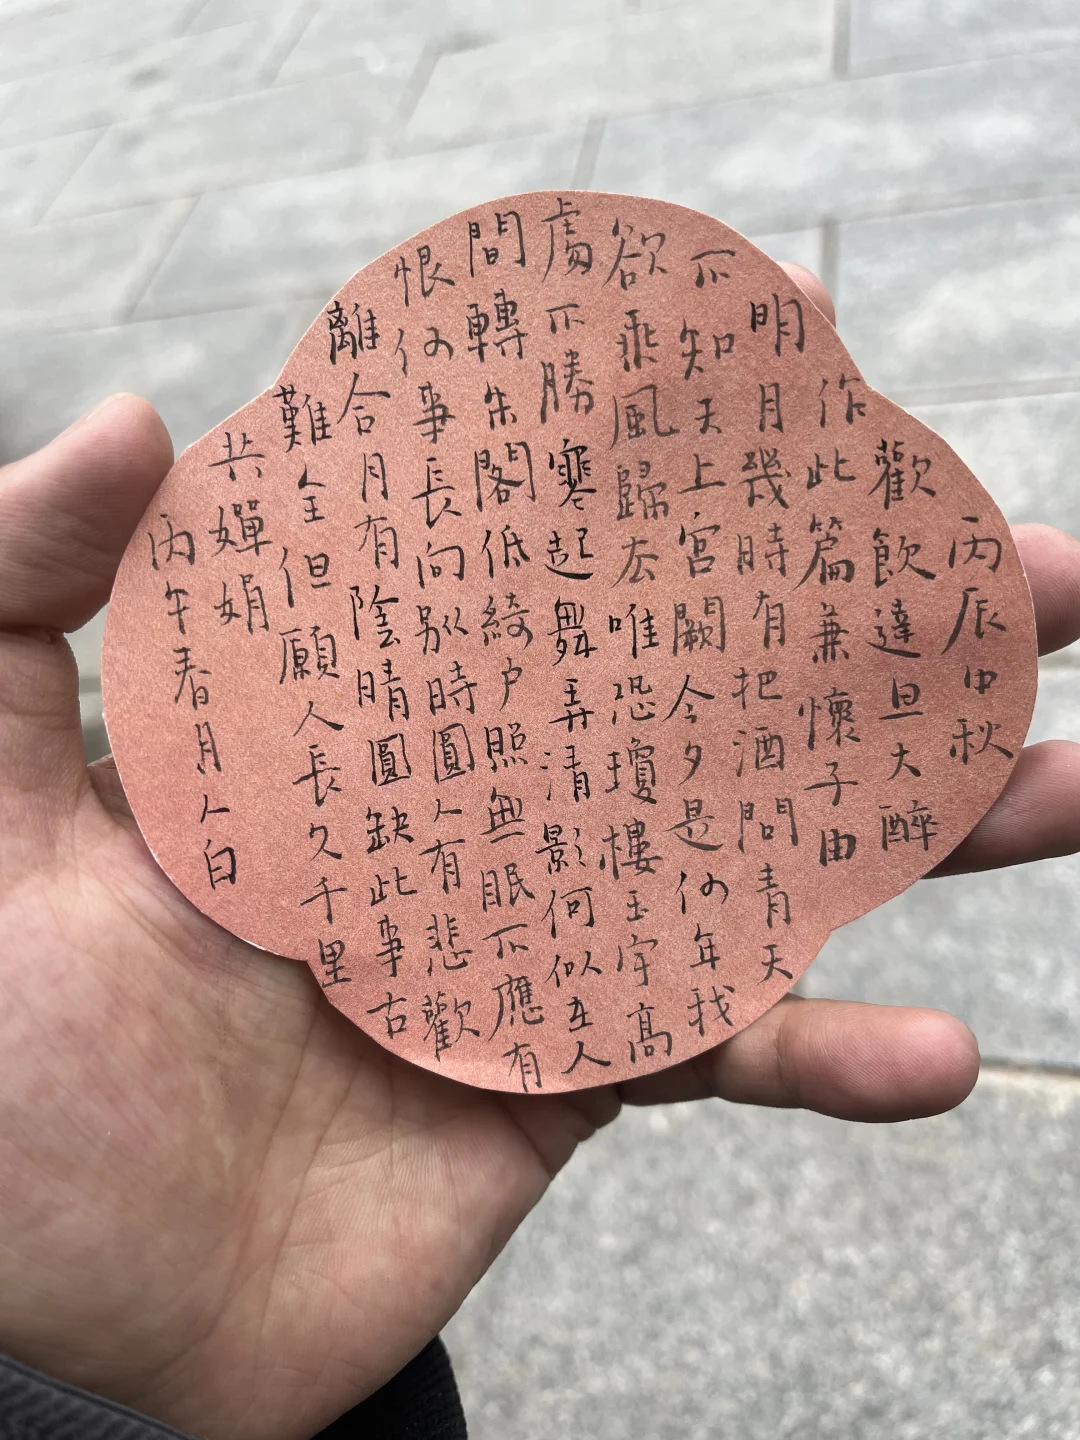 丙辰中秋
歡飲達旦大醉
作此篇兼懷子由
明月幾時有把酒問青天
不知天上宮闕今夕是何年我
欲乘風歸去唯恐瓊樓玉宇高
處不勝寒起舞弄清影何似在人
間轉朱閣低綺户照無眠不應有
恨何事長向別時圓人有悲歡
離合月有陰晴圓缺此事古
難全但願人長久千里
共嬋娟
丙午春月人白